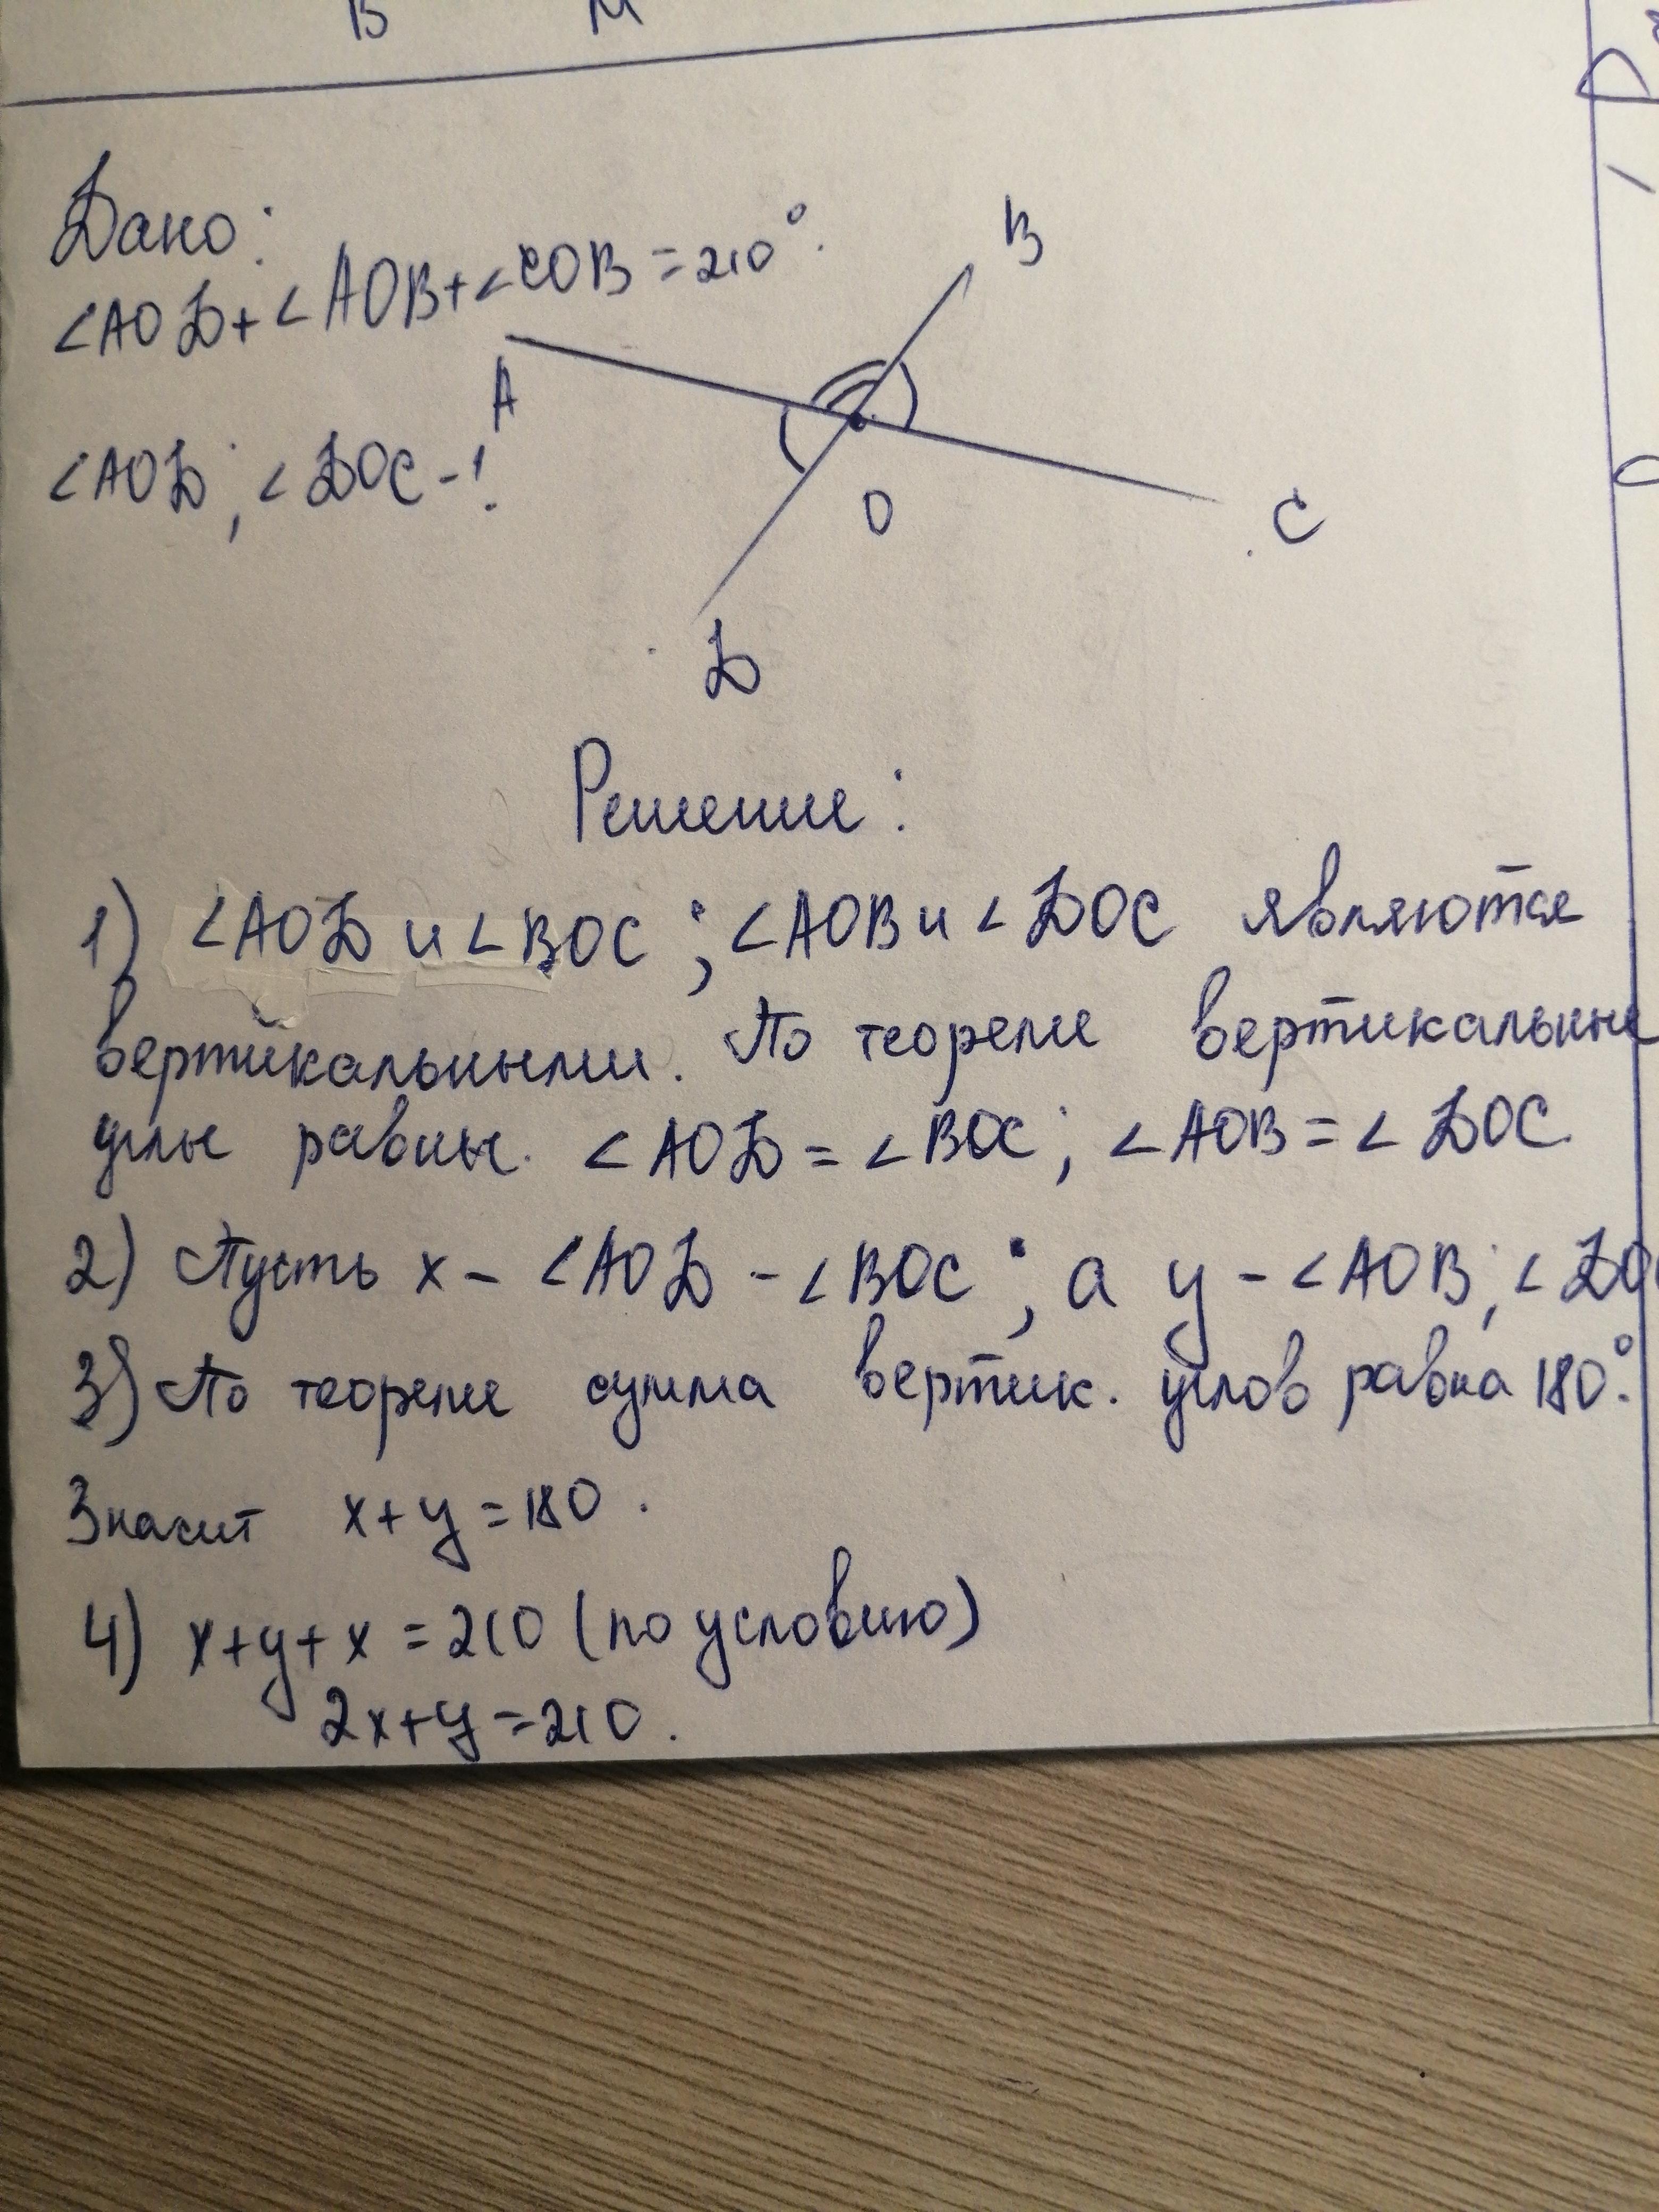 В М
Дано:
∠AOD+∠AOB+∠COB=210°.
B
A
∠AOD; ∠DOC-?
O
C
D
Решение:
1) ∠AOD и ∠BOC; ∠AOB и ∠DOC являются
вертикальными. По теореме вертикальные
углы равны. ∠AOD=∠BOC; ∠AOB=∠DOC.
2) Пусть x - ∠AOD - ∠BOC; а y - ∠AOB; ∠DOC
3) По теореме сумма вертик. углов равна 180°.
Значит x+y=180.
4) x+y+x=210 (по условию)
2x+y=210.